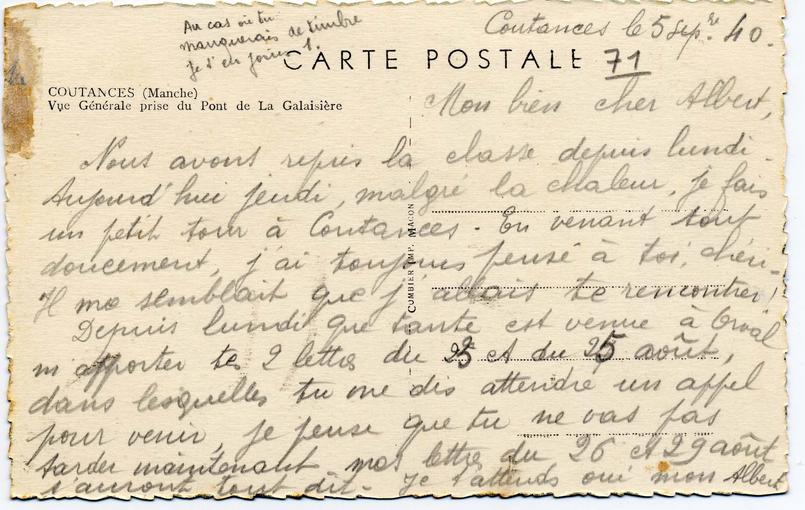 Au cas où tu
manquerais de timbre
je t'en joins 1.
Coutances le 5 sep.re 40.
CARTE POSTALE 71
COUTANCES (Manche)
Vue Générale prise du Pont de La Galaisière
Mon bien cher Albert,
Nous avons repris la classe depuis lundi.
Aujourd'hui jeudi, malgré la chaleur, je fais
un petit tour à Coutances. En venant tout
doucement, j'ai toujours pensé à toi, chéri!
Il me semblait que j'allais te rencontrer!
Depuis lundi que tante est venue à Orval
m'apporter tes 2 lettres du 23 et du 25 août,
dans lesquelles tu me dis attendre un appel
pour venir, je pense que tu ne vas pas
tarder maintenant mes lettres du 26 et 29 août
t'auront tout dit. Je t'attends oui mon Albert
COMBIER IMP. MACON